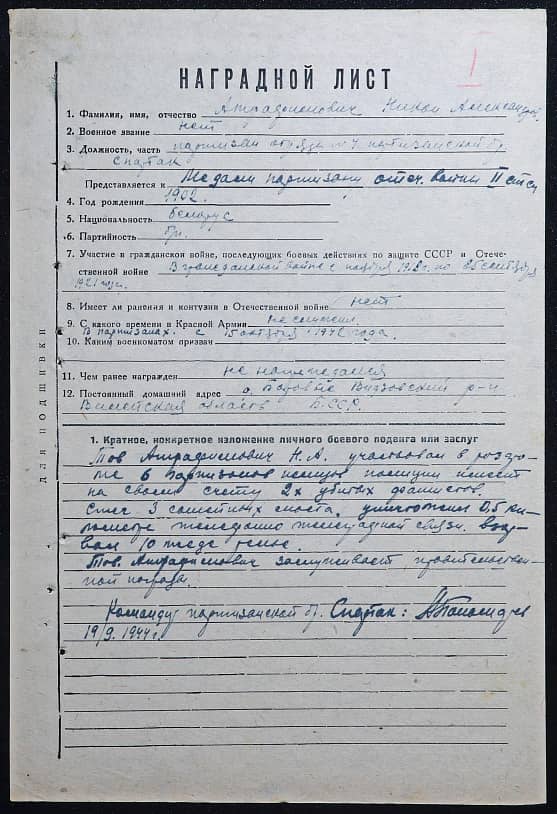 I
НАГРАДНОЙ ЛИСТ
1. Фамилия, имя, отчество
2. Военное звание нет
3. Должность, часть партизан отряда №4 партизанской бр.
Спартак
Представляется к Медали партизану отеч. войны II степ
4. Год рождения 1902.
5. Национальность белорус
6. Партийность бп.
7. Участие в гражданской войне, последующих боевых действиях по защите СССР и Отече-
ственной войне В гражданской войне с по
1921 года.
8. Имеет ли ранения и контузии в Отечественной войне нет
9. С какого времени в Красной Армии не служил.
В партизанах. с 15 октября 1942 года.
10. Каким военкоматом призван
11. Чем ранее награжден не награждался
12. Постоянный домашний адрес р-н
Вилейская область БССР.
ДЛЯ ПОДШИВКИ
1. Краткое, конкретное изложение личного боевого подвига или заслуг
Тов. Н.А. участвовал в разгро-
ме 6 гарнизонов немцев полиции имеет
на своем счету 2х убитых фашистов.
Сжег 3 моста, уничтожил 0,5 ки-
лометр связи.
10
Тов. заслуживает правительствен-
ной награды.
Командир партизанской бр. Спартак:
19/9. 1944г.